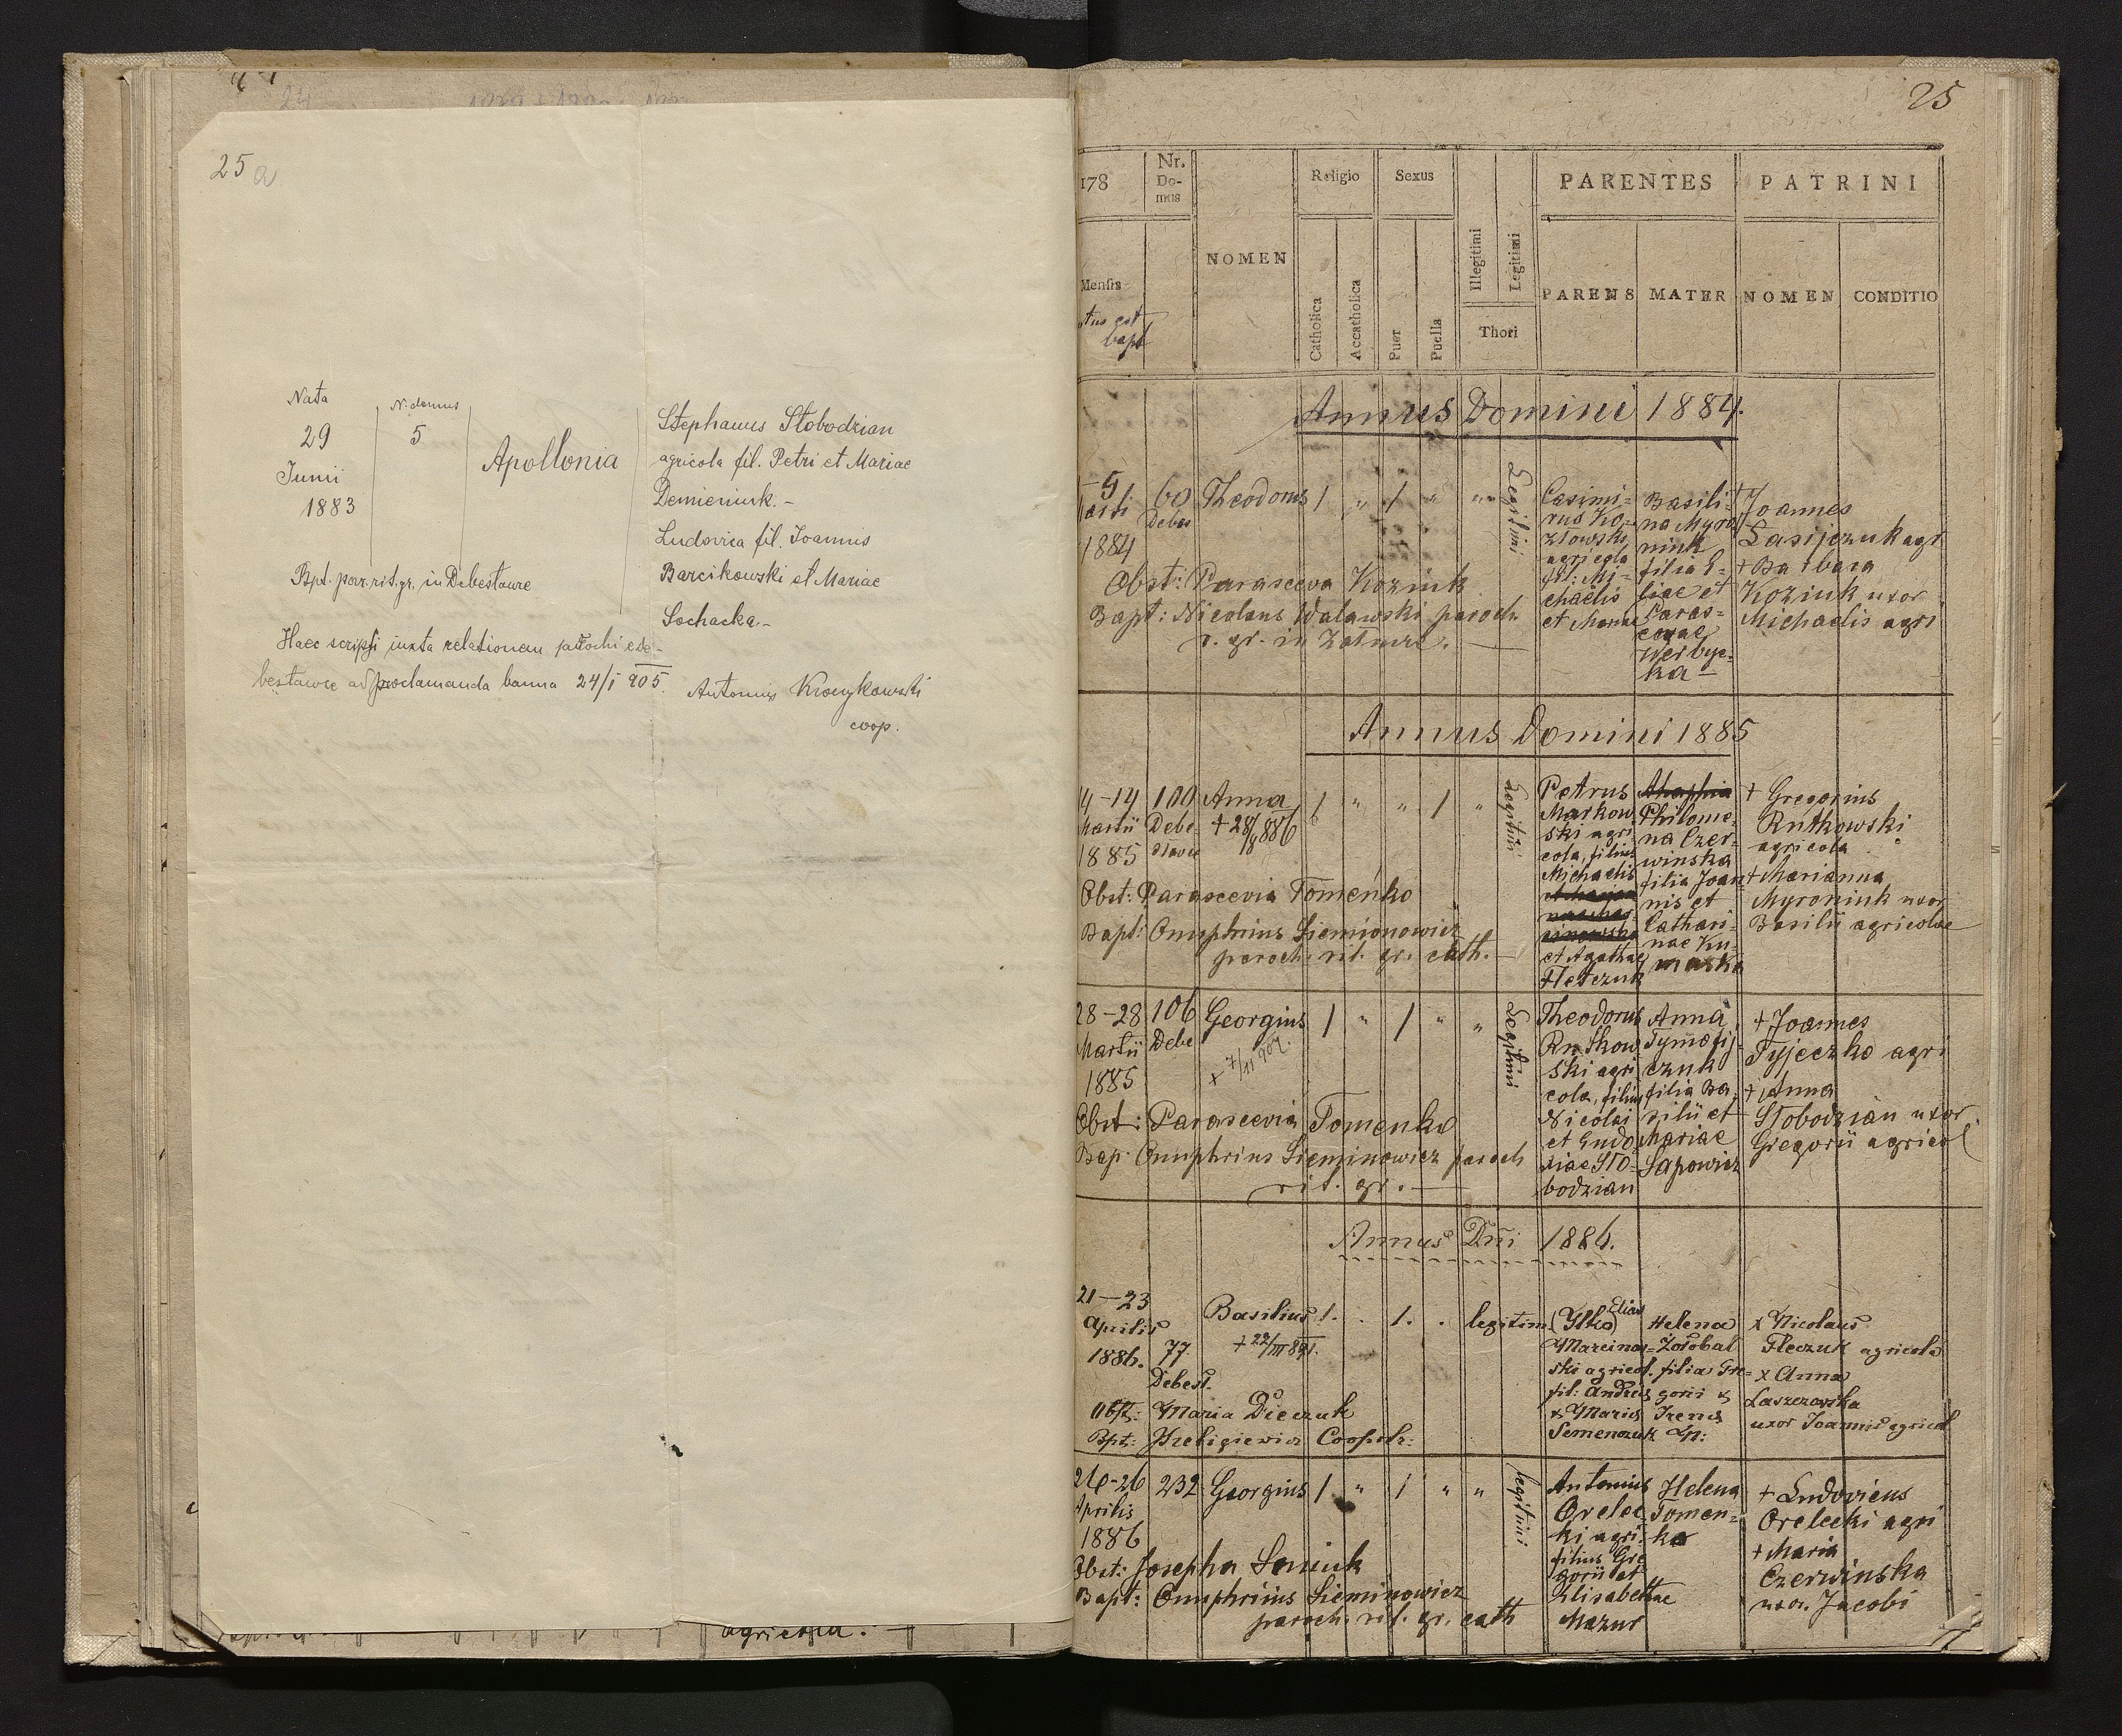 25 a
Nata
N. domus
29
5
Junii
1883
Apollonia
Stephanus Słobodzian
agricola fil. Petri et Mariae
Demieniuk. -
Ludovica fil. Joannis
Barcikowski et Mariae
Sochacka. -
Bpt. par. rit. gr. in Debesławce
Haec scripsi iuxta relationem parochi e De-
besławce ad proclamanda banna 24/I 905.
Antonius
coop.
agricola.
25
178
Nr. Do- mus
NOMEN
Religio
Sexus
PARENTES
PATRINI
Mensis
Catholica
Accatholica
Puer
Puella
Illegitimi
Legitimi
Thori
PARENS
MATER
NOMEN
CONDITIO
est
bapt
Annus Domini 1884.
1884
60
Debes
Theodorus
1 " 1 " "
Legitimi
Casimi-
rus Ko-
złowski
agricola
fil: Mi-
chaelis
et Mariae
Basili-
na Myro
niuk
filia E-
liae et
Paras-
cevae
Werbyc-
ka
+ Joannes
Łasijczuk agr
+ Barbara
Koziuk uxor
Michaelis agri
Obst: Parasceva Koziuk
Bapt: Nicolaus Walawski paroch
r. gr. in
Annus Domini 1885
14-14
Martii
1885
100
Debe
sławce
Anna
+ 28/8 886
1 " " 1 "
Legitimi
Petrus
Markow
ski agri
cola, filius
Michaelis
et Agathae
Fleczuk
Philome-
na Czer-
winska
filia Joan
nis et
Cathari-
nae Ku-
maska
+ Gregorius
Rutkowski
agricola
+ Marianna
Myroniuk uxor
Basilii agricolae
Obst: Parascevia Tomeńko
Bapt: Onuphrius Siemionowicz
paroch. rit. gr. cath.
28-28
Martii
1885
106
Debe
Georgius
+ 7/11 907.
1 " 1 " "
Legitimi
Theodorus
Rutkow
ski agri
cola, filius
Nicolai
et Eudo
xiae Sło-
bodzian
Anna
Tymofij-
czuk
filia Ba
silii et
Mariae
Sapowicz
+ Joannes
Tyjeczko agri
+ Anna
Słobodzian uxor
Gregorii agricol
Obst: Parascevia Tomenko
Bap: Onuphrius Sieminowicz paroch
rit. gr.
Annus Dni 1886.
21-23
Aprilis
1886.
77.
Debesł.
Basilius
+ 22/III 891.
1. . 1. .
legitim.
Elias
(Ylko)
Marcinow-
ski agricol.
fil: Andreis
& Maries
Semenczuk
Helena
filia Gre-
gorii &
Irenes
x Nicolaus
Fleczuk agricola
x Anna
Laszczowska
uxor Joannis agricol
Obst: Maria Dieczuk
Bpt: Coopstr:
26-26
Aprilis
1886
232
Georgius
1 " 1 " "
legitimi
Antonius
Orelec
ki agri.
filius Gre
gorii et
Elisabethae
Mazur
Helena
Tomen-
ko
+ Ludovicus
Orelecki agri
+ Maria
Czerwinska
uxor. Jacobi
Obst: Josepha Saniuk
Bapt: Onuphrius Sieminowicz
paroch. rit. gr. cath